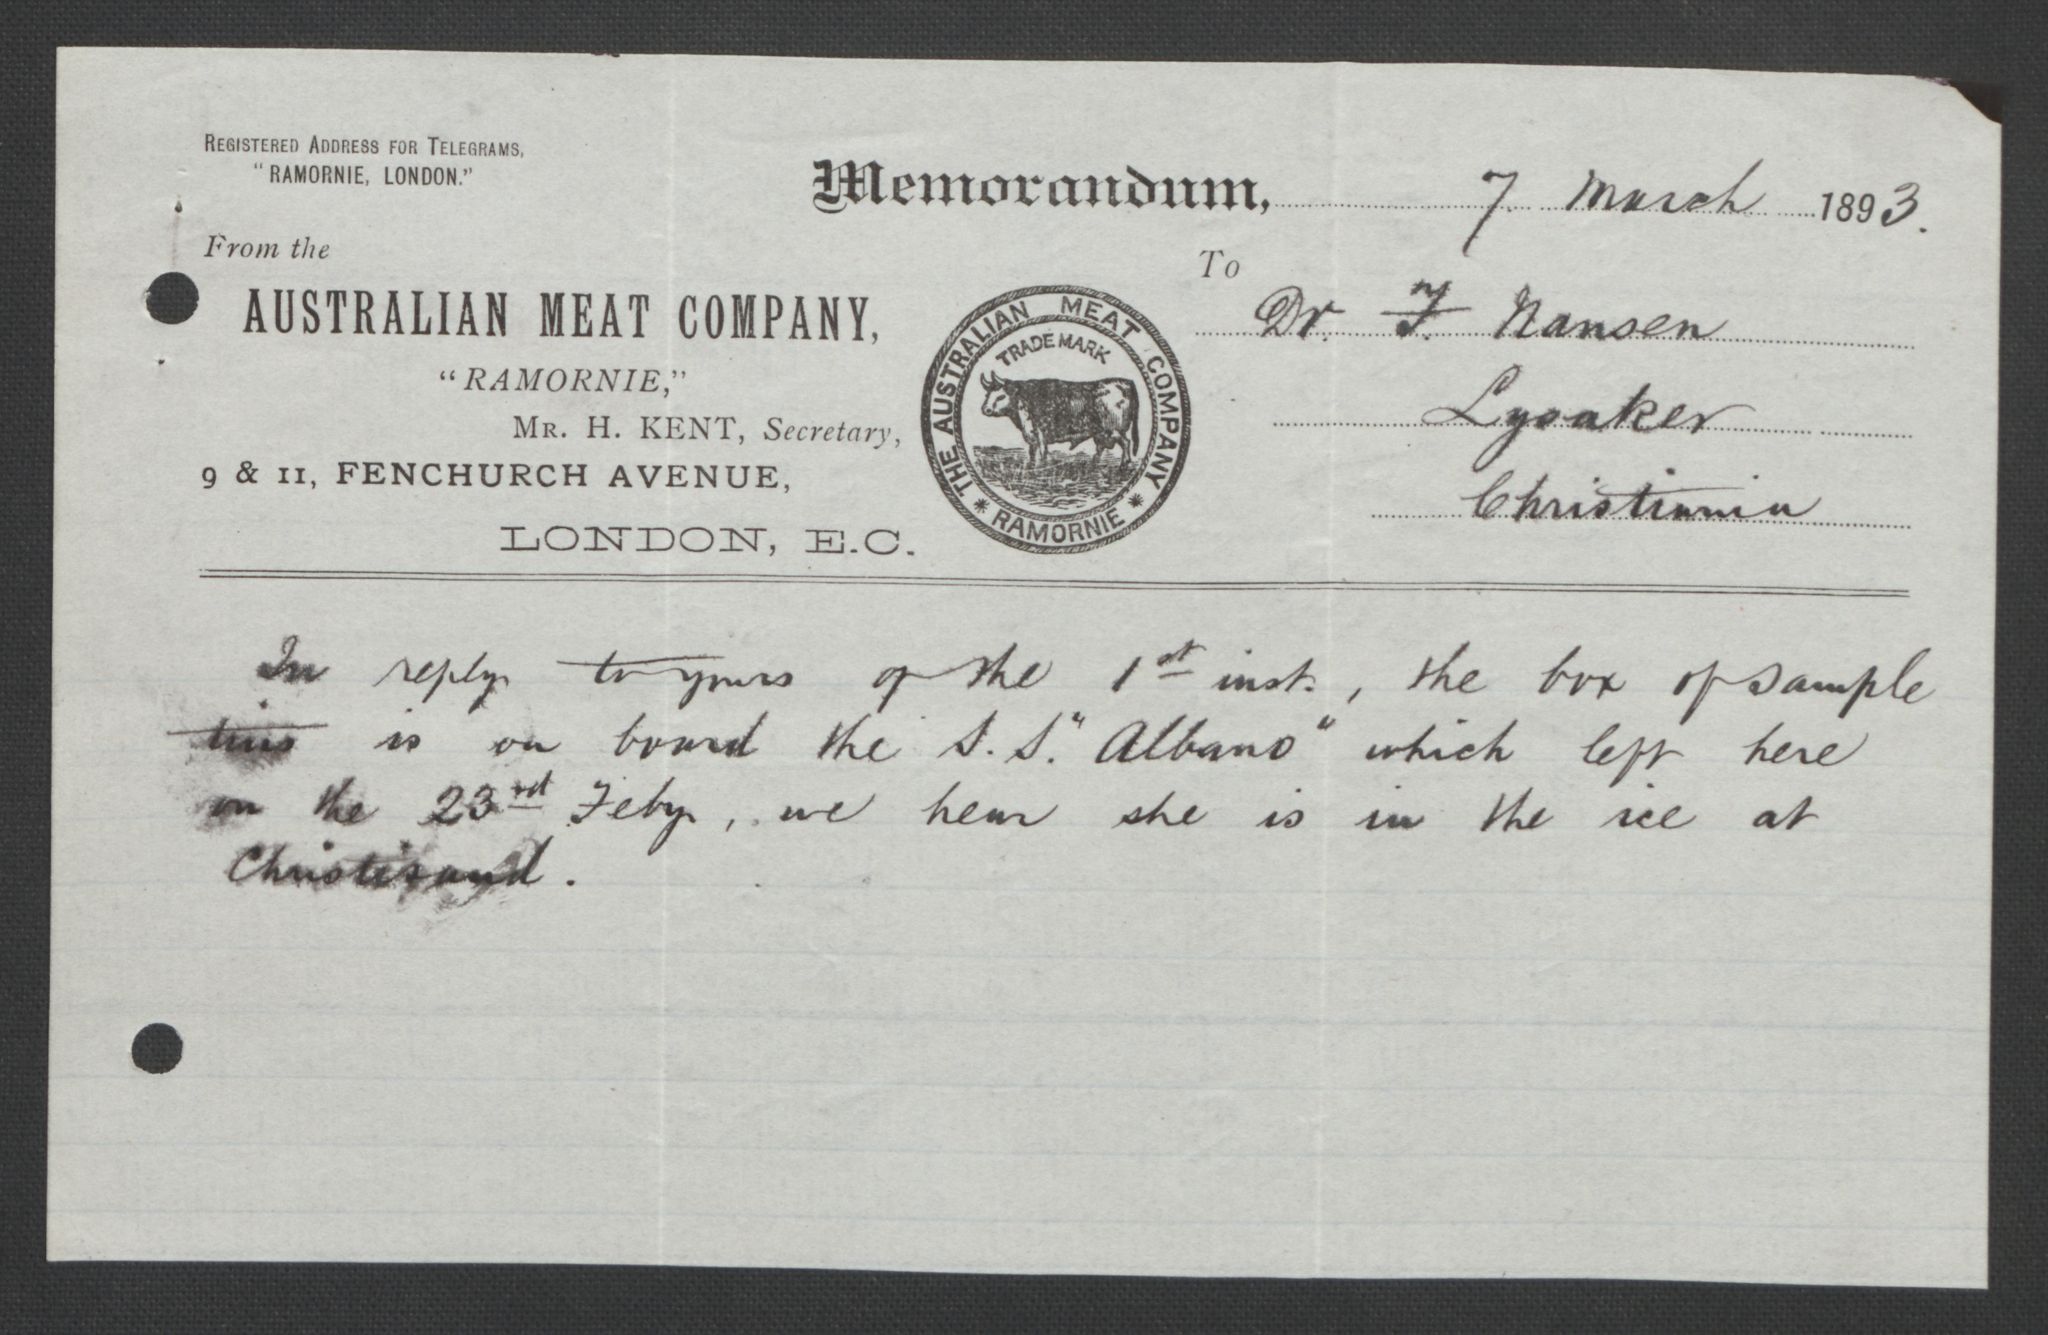 REGISTERED ADDRESS FOR TELEGRAMS,
"RAMORNIE, LONDON."
Memorandum, 7 March 1893.
From the
AUSTRALIAN MEAT COMPANY,
"RAMORNIE,"
MR. H. KENT, Secretary,
9 & 11, FENCHURCH AVENUE,
LONDON, E.C.
THE AUSTRALIAN MEAT COMPANY
TRADE MARK
* RAMORNIE *
To
Dr. F. Nansen
Lysaker
Christiania
In reply to yours of the 1st inst., the box of sample
tins is on board the S.S. "Albano" which left here
on the 23rd Feby, we hear she is in the ice at
Christisand.